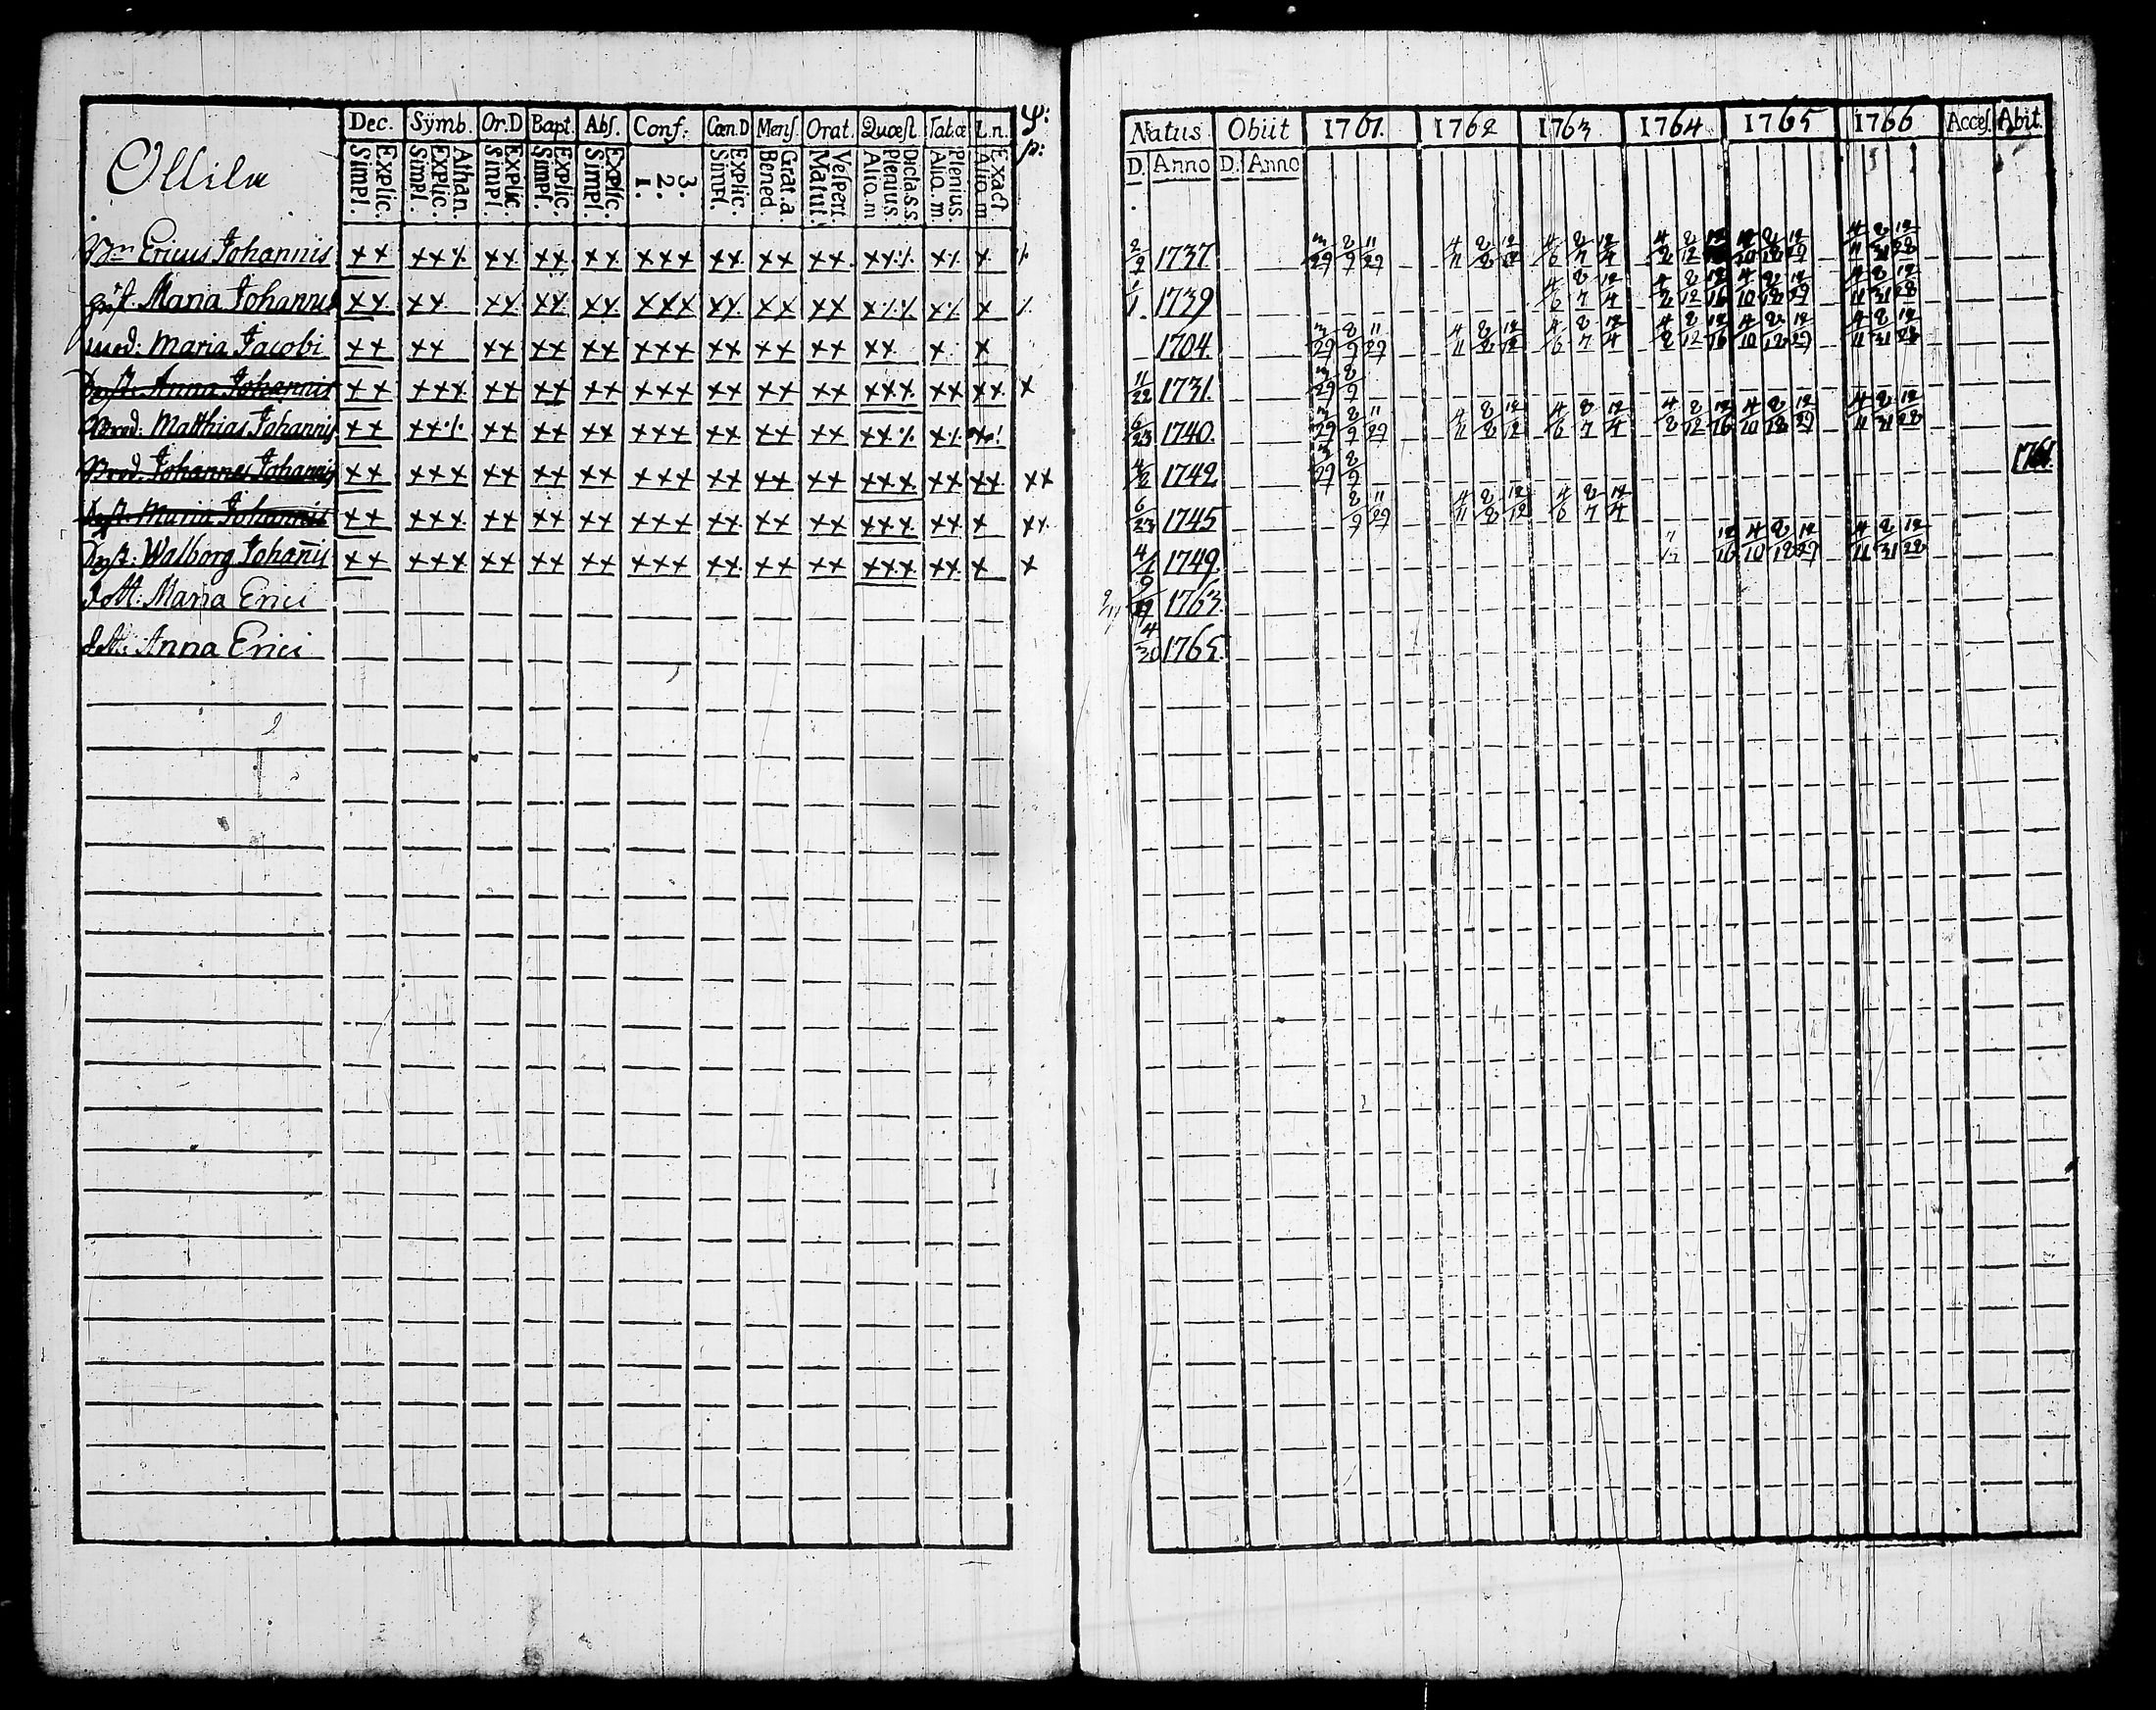 Ollila
Dec. Symb. Or.D Bapt. Abſ. Conf: Cœn.D Menſ Orat. Quœſt. Tabœ L.n. ψ:
p:
Explic. Simpl. Athan. Explic. Simpl. Explic. Simpl. Explic. Simpl. Explic. Simpl. 3. 2. 1. Explic. Simpl. Grat.a Bened. Veſpert. Matut. Dicta.s.s. Plenius. Aliq.m Plenius. Aliq.m. Exact Aliq.m
Ericus Johannis
Maria Johannis
mod: Maria Jacobi
Anna Johannis
Brod: Matthias Johannis
Brod. Johannes Johannis
Maria Johannis
Walborg Johañis
dott: Maria Erici
dott: Anna Erici
Natus Obiit 1761. 1762 1763 1764 1765 1766 Acceſ. Abit.
D. Anno D. Anno
2/9 1737 3/29 8/9 11/29 4/11 8/8 12/12 4/6 8/7 12/4 4/8 8/12 4/10 8/18 12/29 4/11 8/31 12/28
1/1 1739 4/6 8/7 12/4 4/8 8/12 12/16 4/10 8/18 12/29 4/11 8/31 12/28
1704. 3/29 8/9 11/29 4/11 8/8 12/12 4/6 8/7 12/4 4/8 8/12 12/16 4/10 8/18 12/29 4/11 8/31 12/28
11/22 1731. 3/29 8/9
6/23 1740. 3/29 8/9 11/29 4/11 8/8 12/12 4/6 8/7 12/4 4/8 8/12 12/16 4/10 8/18 12/29 4/11 8/31 12/28
1742 3/29 8/9 1761.
6/23 1745 8/9 11/29 4/11 8/8 12/12 4/6 8/7 12/4
1749. 12/16 4/10 8/18 12/29 4/11 8/31 12/28
9/29 1763.
4/30 1765.